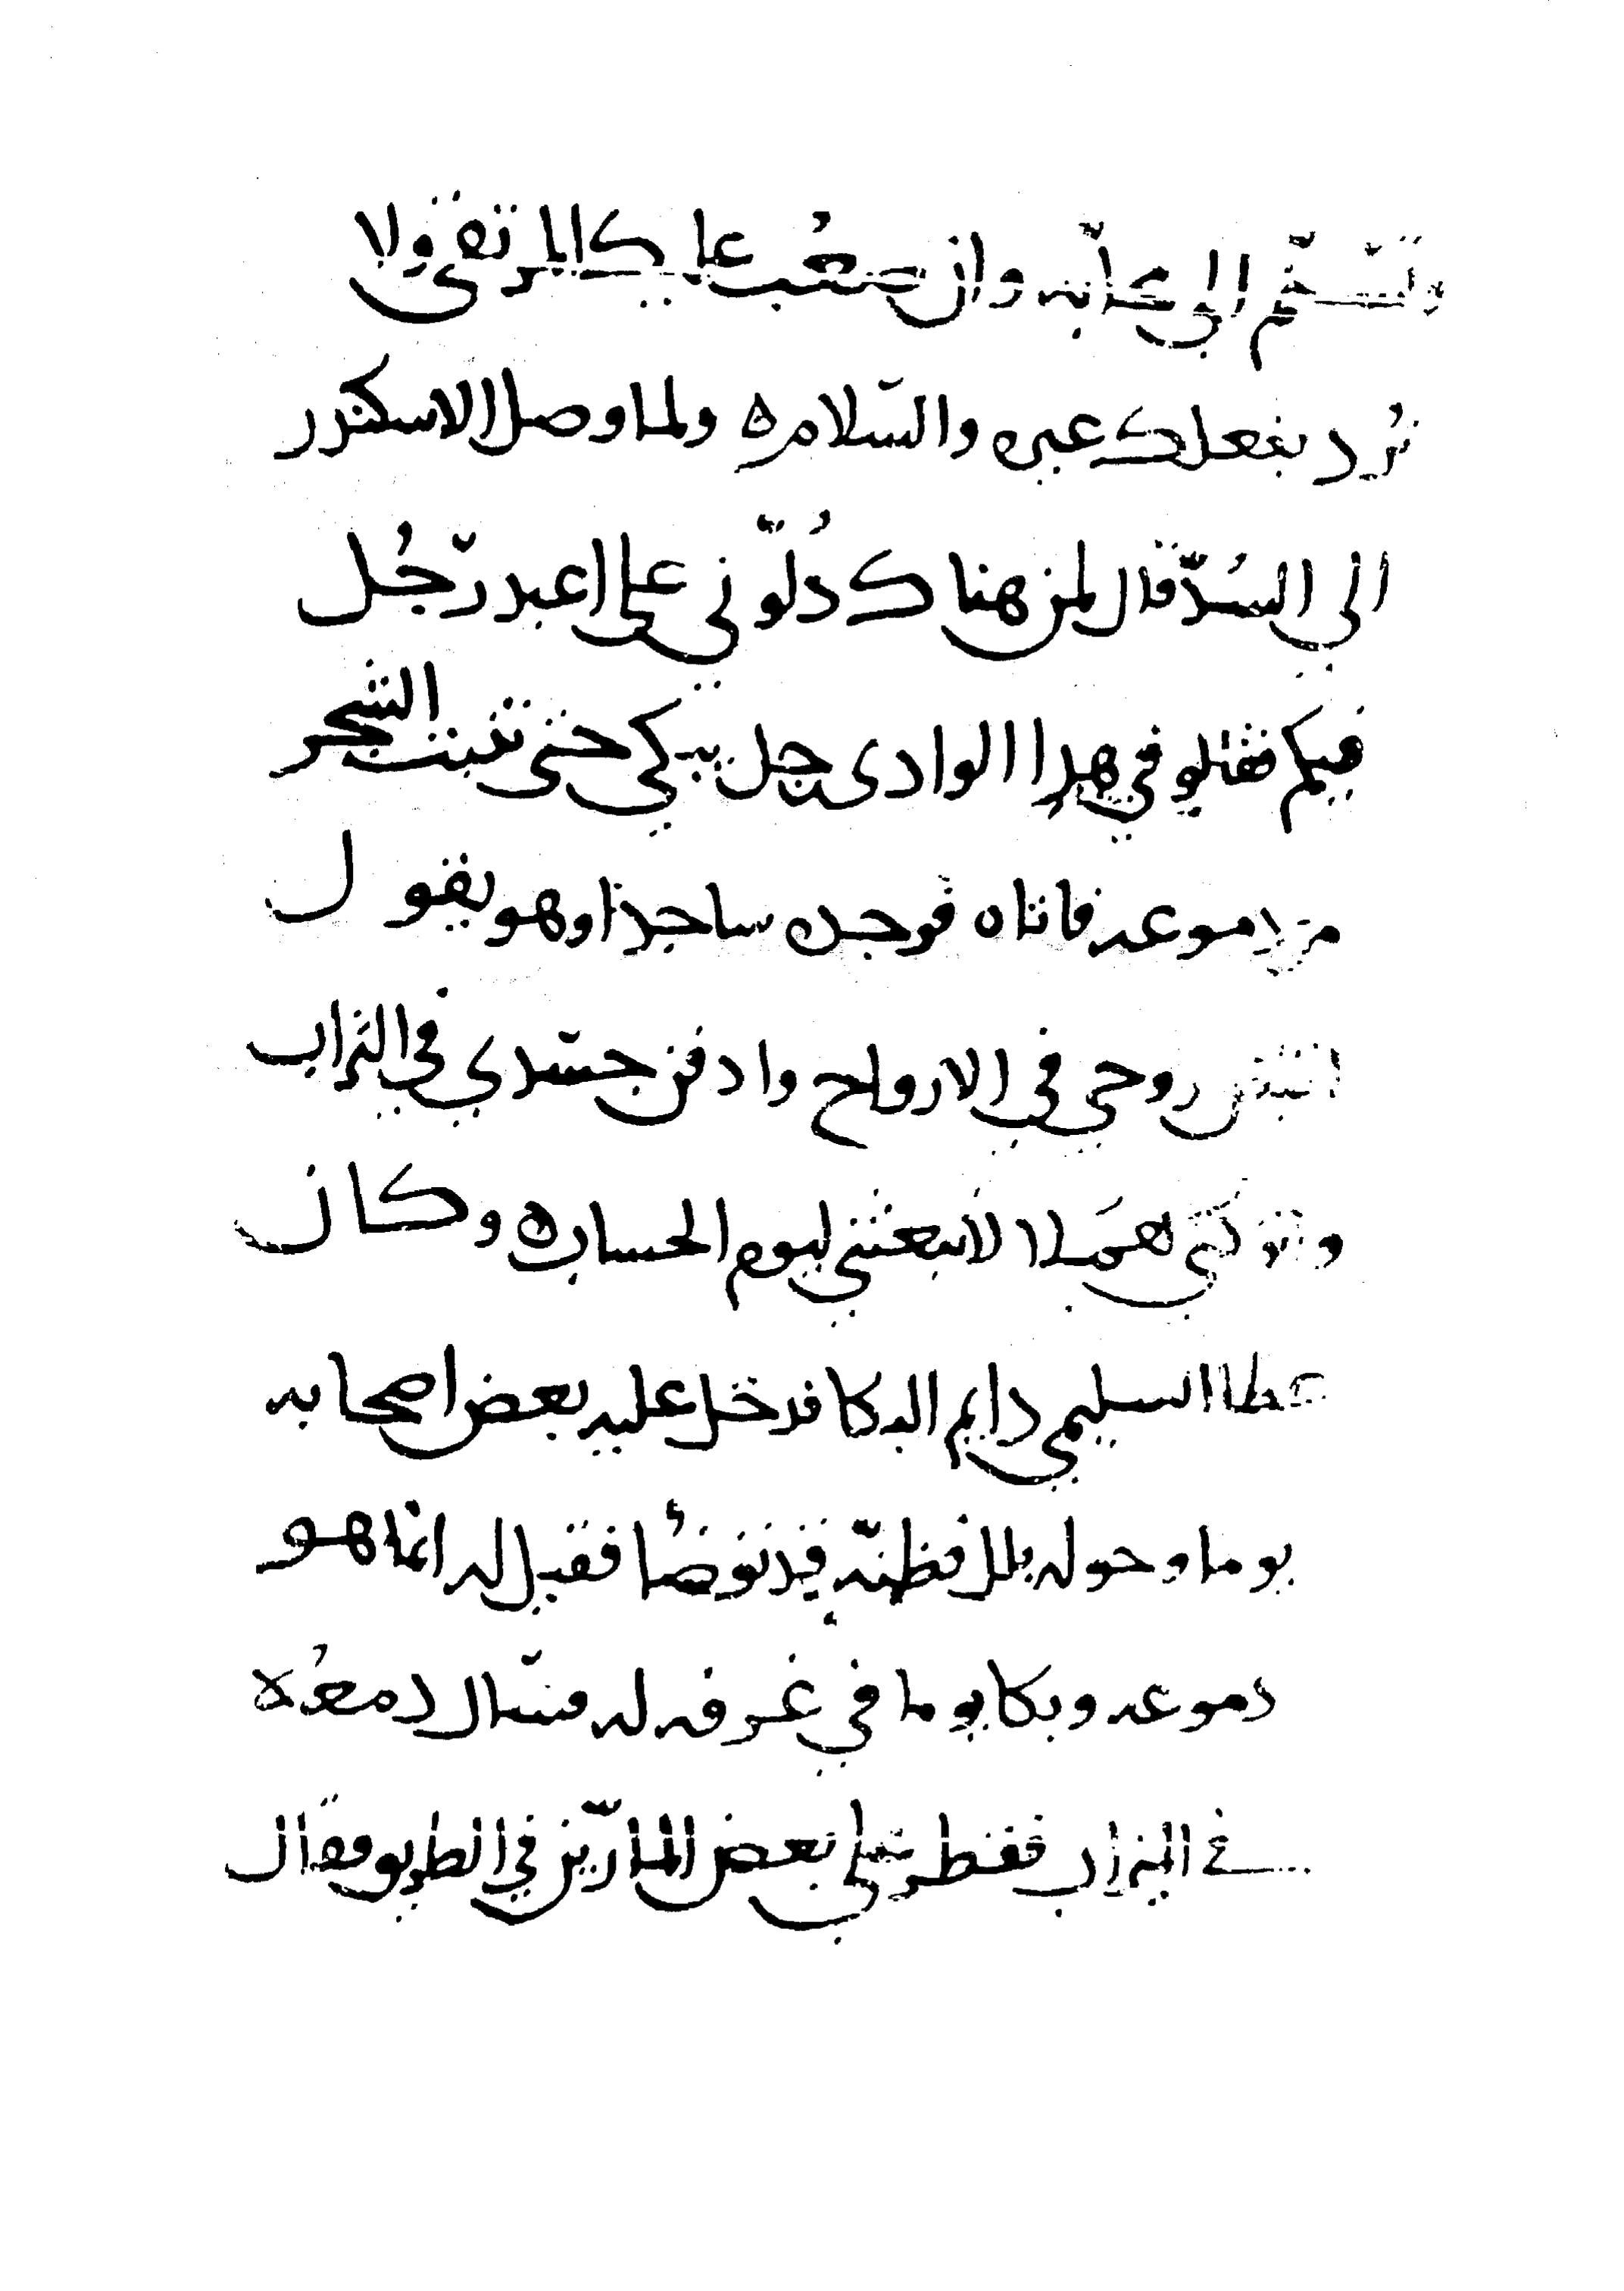 وتتسنّم الى محرابه وان صعُب عليك المرتقى ولا
تُرد بفعلك غيره والسّلام ه ولما وصل الاسكندر
الى السُدّ قال لمن هناك دُلّوني على اعبد رّجُل
فيكم فقالو في هذا الوادى رجل يبكي حتى تنبت الشجر
من دموعه فاتاه فوجده ساجدا وهو يقول
اقبض روحي في الارواح وادفن جسّدي في التراب
واتركني همَلا لا تبعثني ليوم الحساب ه وكان
عطا السليمي دايم البكا فدخل عليه بعض اصحابه
يوما وحوله بلل فظنّه قد توضُأ فقيل له انما هو
دموعه وبكا يوما في غرفه له فسّال دمعُه
في الميزاب فقطر على بعض المارّين في الطريق فقال